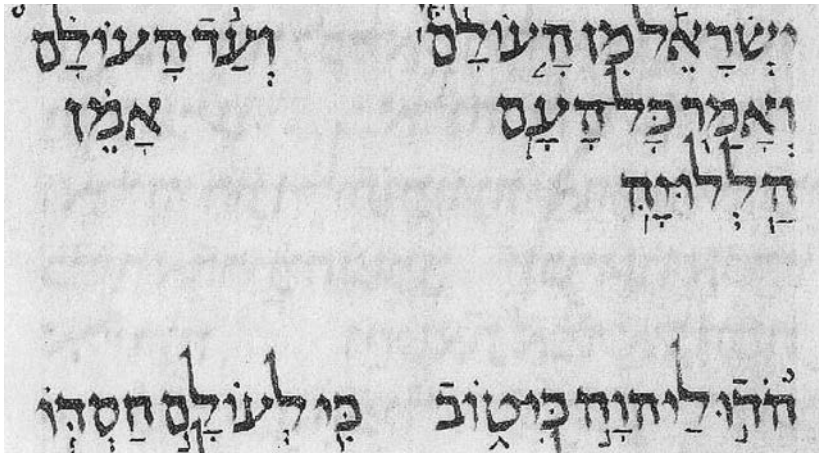 יִשְׂרָאֵל מִן הָעוֹלָם וְעַד הָעוֹלָם
וְאָמַר כָּל הָעָם אָמֵן
הַלְלוּיָהּ
הֹדוּ לַיהוָה כִּי טוֹב כִּי לְעוֹלָם חַסְדּוֹ